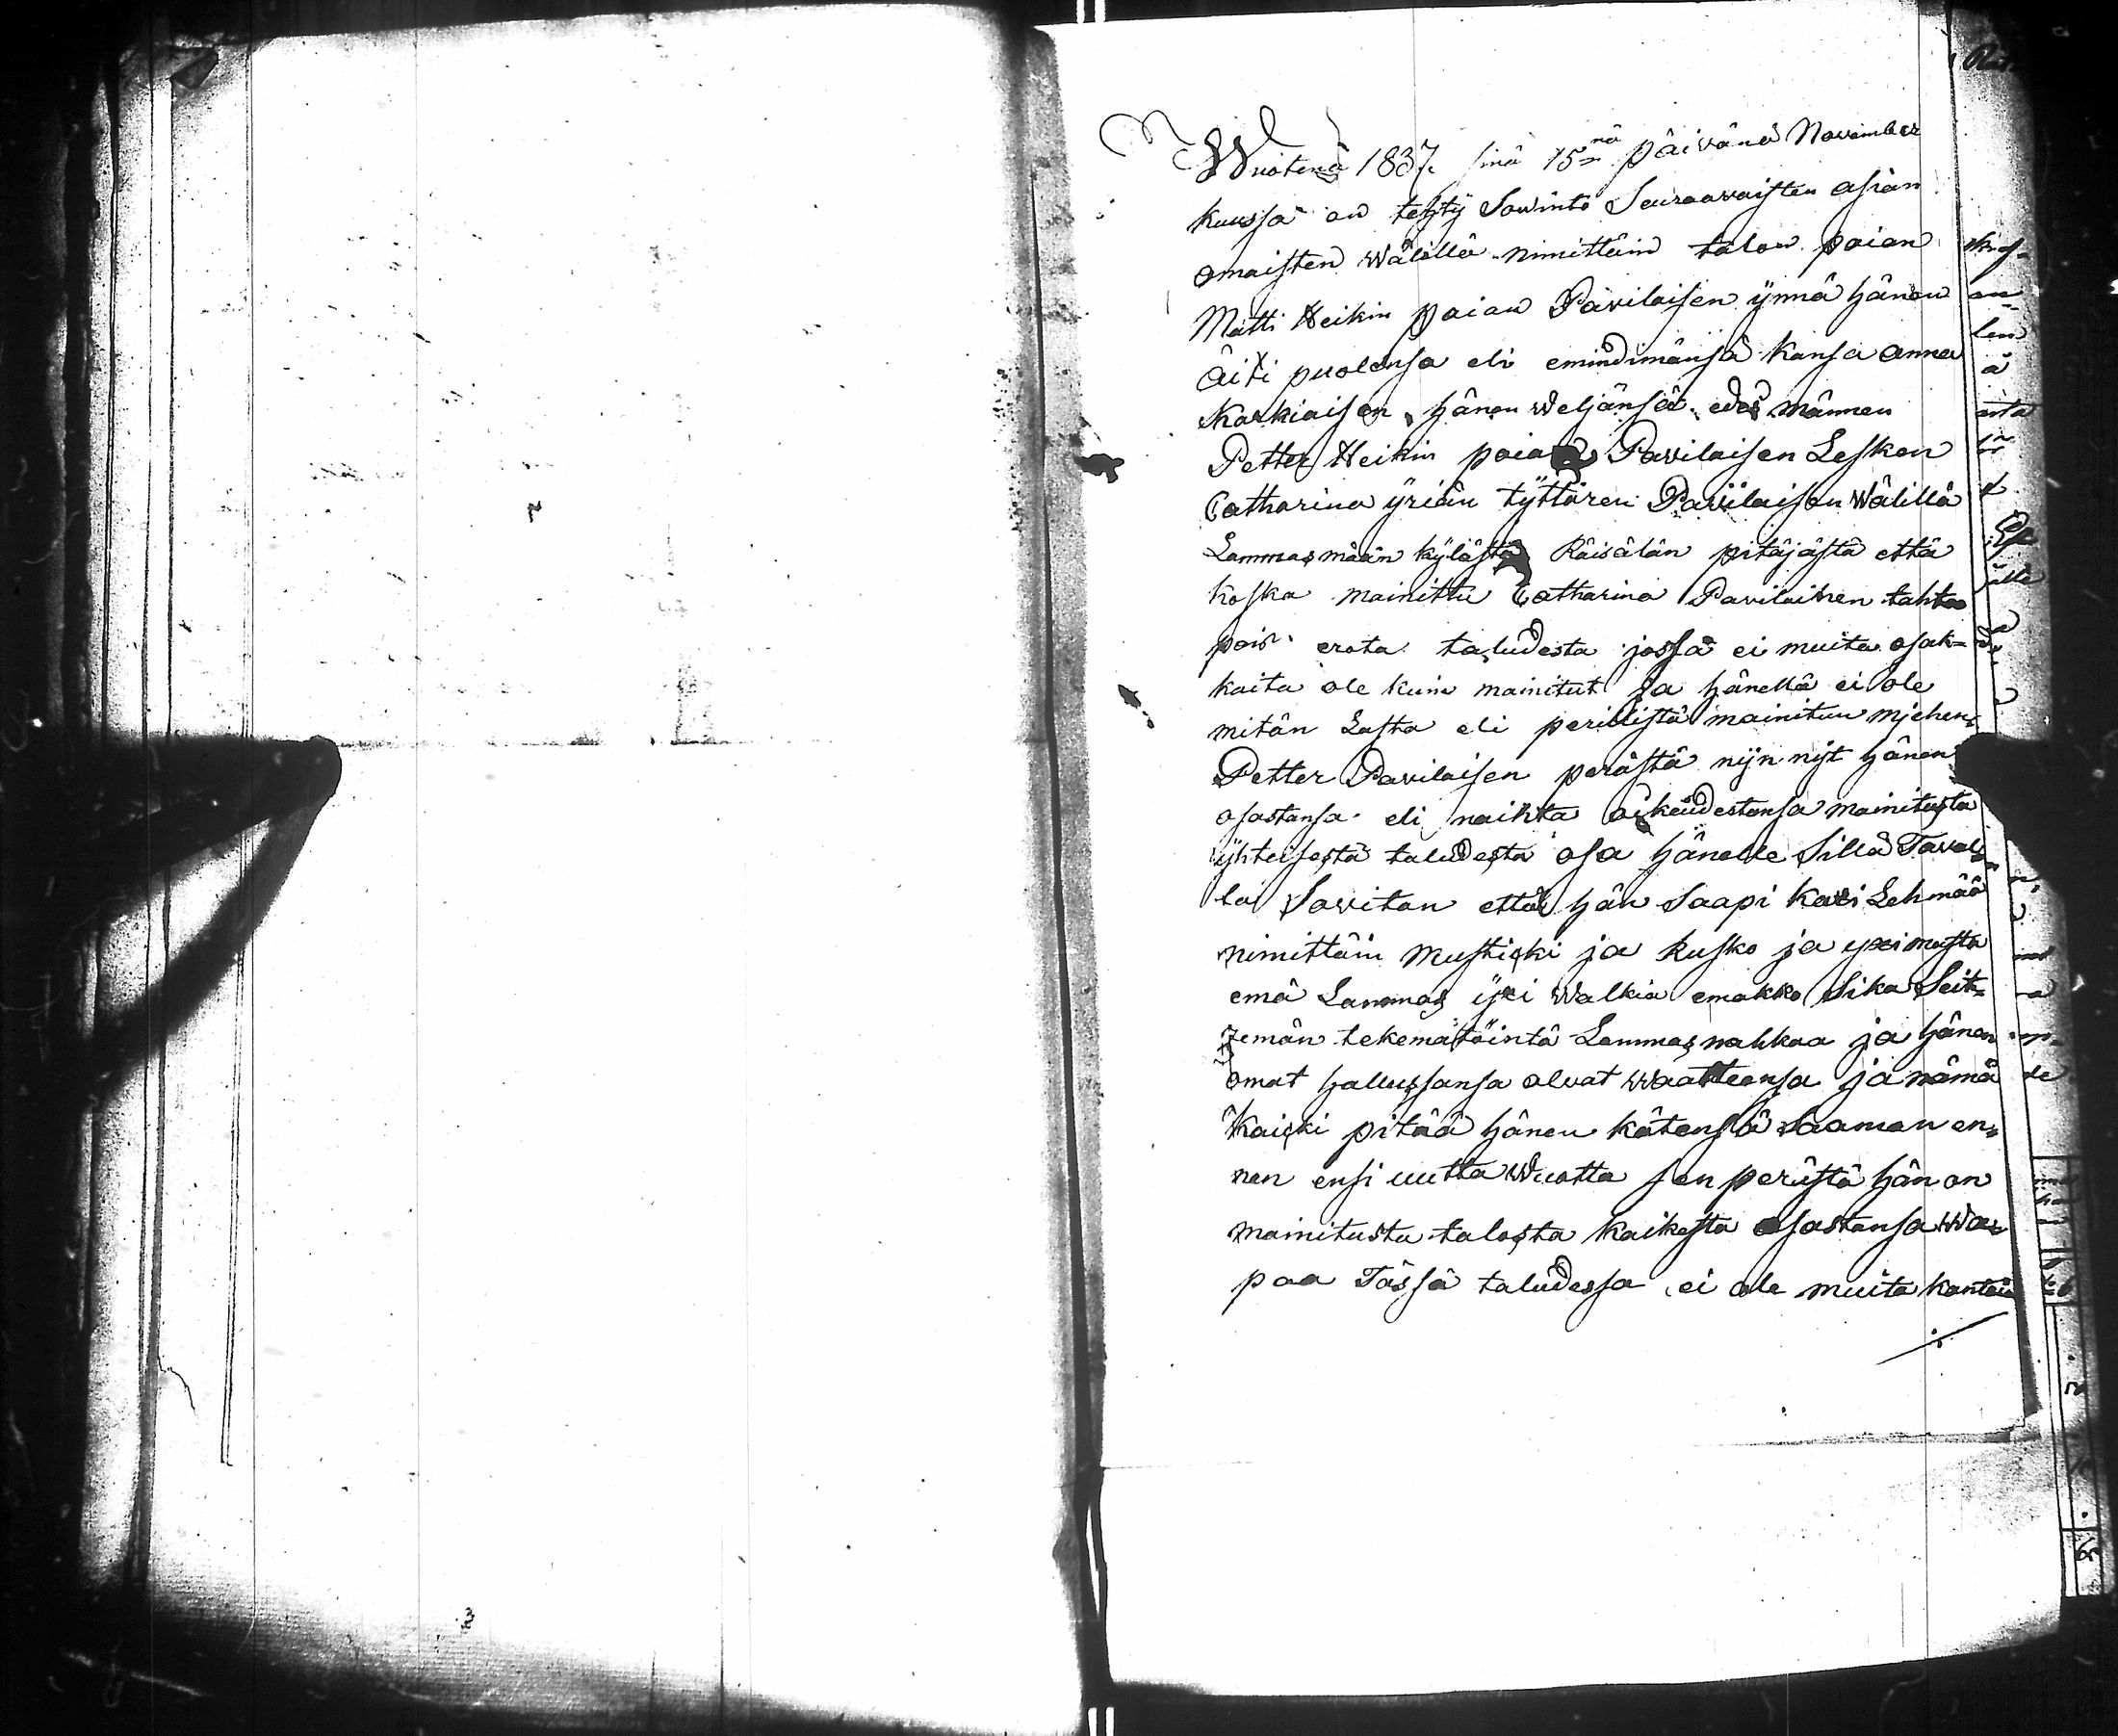 Wuotena 1837. sinä 15nä päivänä November
kuussa on tehty Sowinto Seuraawaisten asian
omaisten wälillä nimittäin talon poian
Matti Heikin poian Pavilaisen ynnä hänen
äiti puolensa eli emindimänsä kansa anna
Karkiaisen, hänen weljänsä edes männen
Petter Heikin poian Pawilaisen Lesken
Catharina yriän tyttären Pavilaisen wälillä
Lammasmään kylästä Räisälän pitäjästä että
koska mainittu Catharina Pavilainen tahtoo
pois erota taludesta jossa ei muita osak=
kaita ole kuin mainitut ja hänellä ei ole
mitän Lasta eli perillistä mainitun mjehens
Petter Pavilaisen perästä nijn nyt hänen
osastansa eli naihta oikeudestansa mainitusta
yhteisestä taludesta osa hänelle Sillä Taval=
la Sovitan että hän Saapi kaxi Lehmää
nimittäin Mustikki ja Rusko ja yxi musta
emä Lammas yxi Walkia emakko Sika Seit=
zemän tekemätöintä Lammas nahkaa ja hänen
omat hallussansa olvat waatteensa ja nämä
Kaicki pitää hänen kätensä Saaman en=
nen ensi uutta Wuotta sen perästä hän on
mainitusta talosta kaikesta osastansa Wa=
paa Tässä taludessa ei ole muita kantein
./.